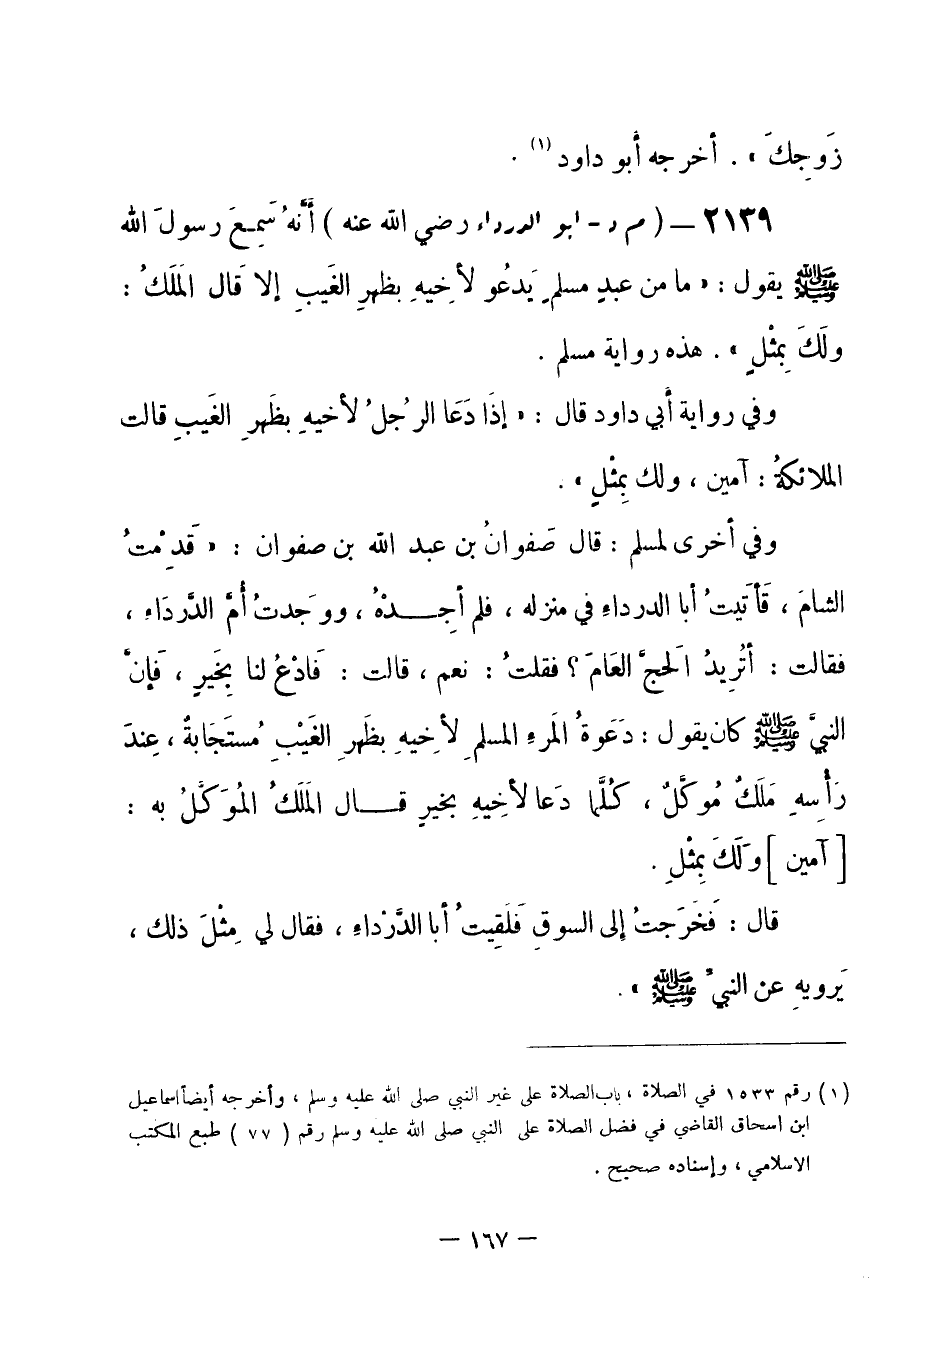 زَوجِكَ » . أخرجه أبو داود (١) .
٢١٣٩ – ( م د - ابو الدرداء رضي الله عنه ) أَنَّهُ سَمِعَ رسولَ الله
ﷺ يقول : « ما من عبدٍ مسلمٍ يَدعُو لأخِيهِ بظهرِ الغَيبِ إلا قَال المَلَكُ :
ولَكَ بِمْثْلٍ » . هذه رواية مسلم .
وفي رواية أبي داود قال : « إذَا دَعَا الرجُلُ لأخيهِ بظَهرِ الغَيبِ قالت
الملائكةُ : آمين ، ولك بِمْثْلٍ » .
وفي أخرى لمسلم : قال صَفوانُ بن عبد الله بن صفوان : « قَدِمْتُ
الشامَ ، فَأَتَيتُ أبا الدرداءِ في منزله ، فلم أجِــدْهُ ، ووَجَدتُ أُمَّ الدَّردَاءِ ،
فقالت : أتُرِيدُ الَحجَّ العَامَ ؟ فقلتُ : نعم ، قالت : فَادْعُ لنا بِخَيرٍ ، فَإنَّ
النبيَّ ﷺ كان يقول : دَعَوةُ المَرءِ المسلمِ لأخِيهِ بظَهرِ الغَيْبِ مُستَجَابةٌ ، عِندَ
رَأسِهِ مَلَكٌ مُوكَّلٌ ، كُلَّما دَعا لأخِيهِ بخيرٍ قــال المَلَكُ المُوَكَّلُ به :
[ آمين ] ولَكَ بِمْثْلٍ .
قال : فَخَرَجتُ إلى السوقِ فَلَقِيتُ أبا الدَّرْداءِ ، فقال لي مِثْلَ ذلك ،
يَرويهِ عن النبيِّ ﷺ » .
(١) رقم ١٥٣٣ في الصلاة ، باب الصلاة على غير النبي صلى الله عليه وسلم ، وأخرجه أيضاً اسماعيل
ابن اسحاق القاضي في فضل الصلاة على النبي صلى الله عليه وسلم رقم ( ٧٧ ) طبع المكتب
الاسلامي ، وإسناده صحيح .
– ١٦٧ –